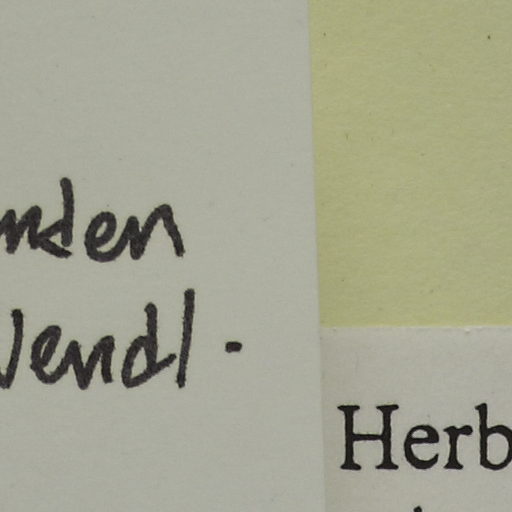 nden
Wendl.
Herb